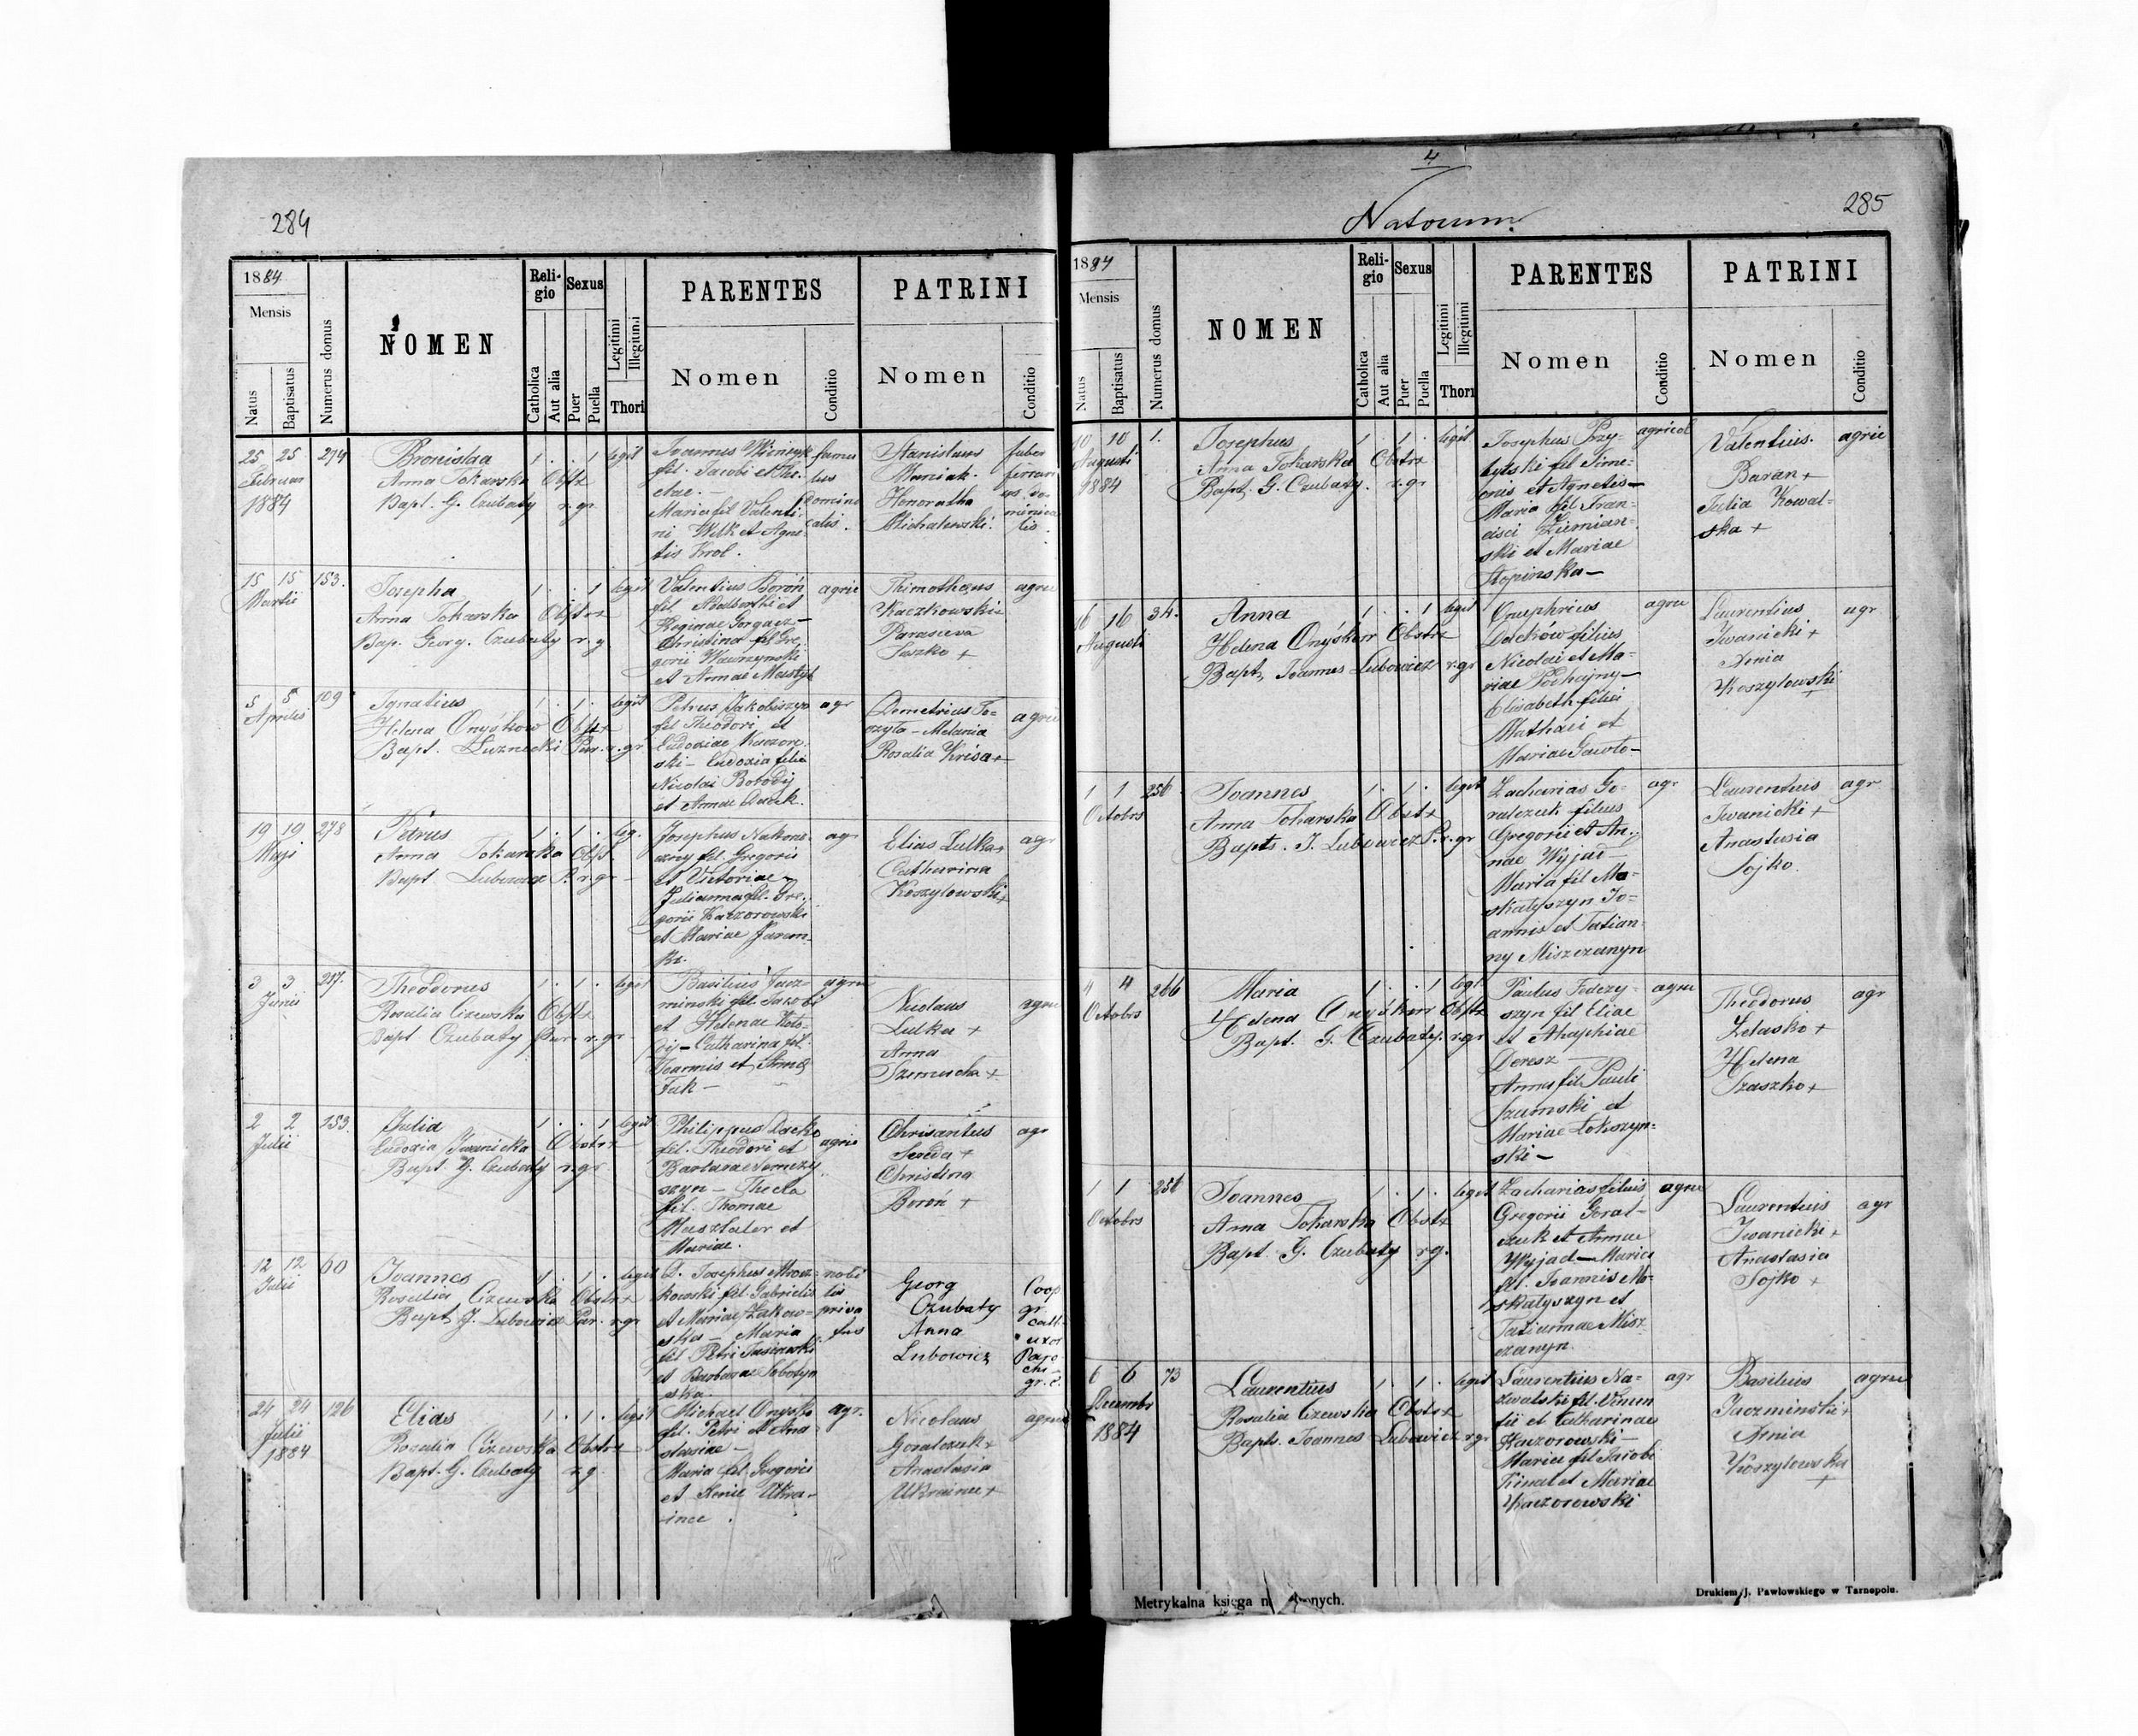 284
1884
Mensis
Natus
Baptisatus
Numerus domus
NOMEN
Reli-
gio
Catholica
Aut alia
Sexus
Puer
Puella
Legitimi
Illegitimi
Thori
PARENTES
Nomen
Conditio
PATRINI
Nomen
Conditio
25 25 274
Februar
1884
Bronislaa
Anna Tokarska Obstx
Bapt. G. Czubaty r. gr.
1 . . 1 legit
Joannes
fil. Jacobi et The-
clae. –
Maria fil Valenti-
ni Wilk et Agne-
tis Krol.
famu
lus
domini
calis.
Stanislaus
Maniak.
Honoratha
Michalewski.
faber
ferrari
us do-
minica
lis.
15 15 153.
Martii
Josepha
Anna Tokarska Obstx
Bap. Georg. Czubaty r. g
1 . . 1 legit
Valentius Boroń
fil. Adalberthi et
Reginae Gorgacz –
Christina fil Gre
gorii Wawrzynski
et Annae
agric
Thimotheus
Kaczkowski
Parasceva
Saszko +
agric
5 5 109
Aprilis
Ignatius
Helena Onyśkow Obstx
Bapt. Luznecki Par. r. gr
1 . 1 . legit
Petrus Jakobiszyn
fil Theodori et
Eudoxiae Kaczoro
ski – Eudoxia filia
Nicolai
et Annae
agr
Demetrius To-
czyta – Melania
Rosalia Krisa +
agric
19 19 278
Maji
Petrus
Anna Tokarska Obst.
Bapt. Lubowicz P. r. gr –
1 . 1 . leg.
Josephus Nakone
czny fil. Gregorii
et Victoriae –
Julianna fil. Gre.
gorii Kaczorowski
et Mariae Jarem-
agr
Elias Lulka +
Catharina
Koszylowski +
agr
3 3 217.
Junii
Theodorus
Rosalia Cizewska Obstx
Bapt Czubaty Par. r. gr
1 . 1 . legit
Basilius Jacz-
minski fil. Jacobi
et Helenae Koto-
dij – Catharina fil.
Joannis et Annae
Fuk –
agric
Nicolaus
Lulka +
Anna
Szemecha +
agric
2 2 153.
Julii
Julia
Eudoxia Iwanicka Obstx
Bapt G. Czubaty r. gr
1 . . 1 legit
Philippus Dacko
fil. Theodori et
Barbarae Semczy
szyn – Thecla
fil. Thomae
Musztaler et
Mariae.
agric
Chrisantus
Sereda +
Christina
Boroń +
agr
12 12 60
Julii
Joannes
Rosalia Cizewska Obstx
Bapt J. Lubowicz Par. r. gr
1 . 1 . legit
D. Josephus Mrocz-
kowski fil. Gabrielis
et Mariae Zakow-
ska – Maria
fil Petri Jasinski
et Barbarae Sobotyn
ska
nobi
lis
priva
tus
Georg
Czubaty
Anna
Lubowicz
Coop
gr.
cath.
uxor
Paro
chi
gr. c.
24 24 126
Julii
1884
Elias
Rosalia Cizewska Obstx
Bapt. G. Czubaty r. g.
1 . 1 . legit
Michael Onysko
fil. Petri et Ana
stasiae –
Maria fil. Gregorii
et Xenie Ukra-
ince.
agr.
Nicolaus
Goralczuk +
Anastasia
Ukrainec +
agric
4
Natorum.
285
1884
Mensis
Natus
Baptisatus
Numerus domus
NOMEN
Reli-
gio
Catholica
Aut alia
Sexus
Puer
Puella
Legitimi
Illegitimi
Thori
PARENTES
Nomen
Conditio
PATRINI
Nomen
Conditio
10 10 1.
Augusti
1884
Josephus
Anna Tokarska Obstx
Bapt. G. Czubaty. r. gr
1 . 1 . legit
Josephus Przy-
bylski fil Sime-
onis et Agnetis –
Maria fil Fran-
cisci Ziemian-
ski et Mariae
Stopinska –
agricol
Valentius.
Baran +
Julia Kowal-
ska +
agric
16 16 34.
Augusti
Anna
Helena Onyśkow Obstx
Bapt. Joannes Lubowicz r. gr
1 . . 1 legit
Onuphrius
Dacków filius
Nicolai et Ma-
riae Podhajny –
Elisabeth filia
Mathaei et
Mariae Gawlo –
agric
Laurentius
Iwanicki +
Xenia
Koszylowski
+
agr
1 1 256.
Octobris
Joannes
Anna Tokarska Obstx
Bapts. J. Lubowicz P. r. gr
1 . 1 . legit
Zacharias Go-
ralczuk filius
Gregorii et An-
nae Wyjad –
Maria fil Mo-
skatyszyn Jo-
annis et Tatian-
ny Miszczanyn
agr
Laurentius
Iwanicki +
Anastasia
Sojko.
agr
4 4 266
Octobris
Maria
Helena Onyśkow Obstx
Bapt. G. Czubaty. r. gr
1 . . 1 legt
Paulus Fedczy-
szyn fil Eliae
et Ahaphiae
Deresz –
Anna fil Pauli
Szumski et
Mariae Lokszyn-
ski –
agric
Theodorus
Zelasko +
Helena
Szaszko +
agr
1 1 256
Octobris
Joannes
Anna Tokarska Obstx
Bapt. G. Czubaty r. g.
1 . 1 . legit
Zacharias filius
Gregorii Goral-
czuk et Annae
Wyjad – Maria
fil. Joannis Mo-
skatyszyn et
Tatiannae Misz-
czanyn.
agric
Laurentius
Iwanicki +
Anastasia
Sojko +
agr
6 6 73
Decembr
1884
Laurentius
Rosalia Cizewska Obstx
Bapts. Joannes Lubowicz r. gr
1 . 1 . legit
Laurentius Na-
zwalski fil.
et Catharinae
Kaczorowski –
Maria fil Jacobi
Kinal et Mariae
Kaczorowski
agr
Basilius
Jaczminski +
Xenia
Koszylowska
+
agric
Metrykalna księga
Drukiem J. Pawłowskiego w Tarnopolu.